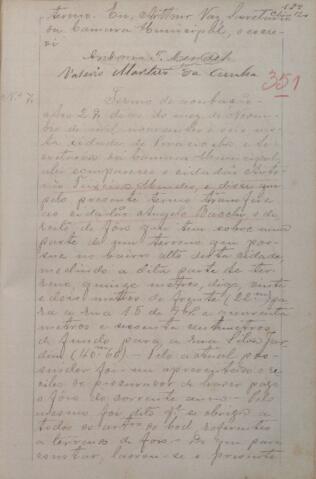 termo. Eu, Arthur Vaz, Secretario
da Camara Municipal, o escre-
vi
Antonio T. Mendes
Valerio Martins da Cunha
351
Nº 7.
Termo de
aos 27 dias do mez de Novem-
bro de mil novecentos e seis nes-
ta cidade de Piracicaba e Se-
cretaria da Camara Municipal,
ahi compareceu o cidadão Anto-
nio Teixeira Mendes, e disse que
pelo presente termo transfere
ao cidadão Angelo Bacchi o di-
reito de fôro que tem sobre uma
parte de um terreno que pos-
sue no bairro alto desta cidade,
medindo a dita parte de ter-
reno, quinze metros, digo, vinte
e dois metros de frente (22 m) pa-
ra a rua 15 de 9bro e quarenta
metros e sessenta centimetros
de fundo para a rua Silva Jar-
dim (40m,60) - Pelo actual pos-
suidor foi-me apresentado o re-
cibo da procurador de haver pago
o fôro do corrente anno - Pelo
mesmo foi dito q' se obriga a
todos os artos do cod. referentes
a terrenos de fôro - Do que para
constar, lavrou-se o presente